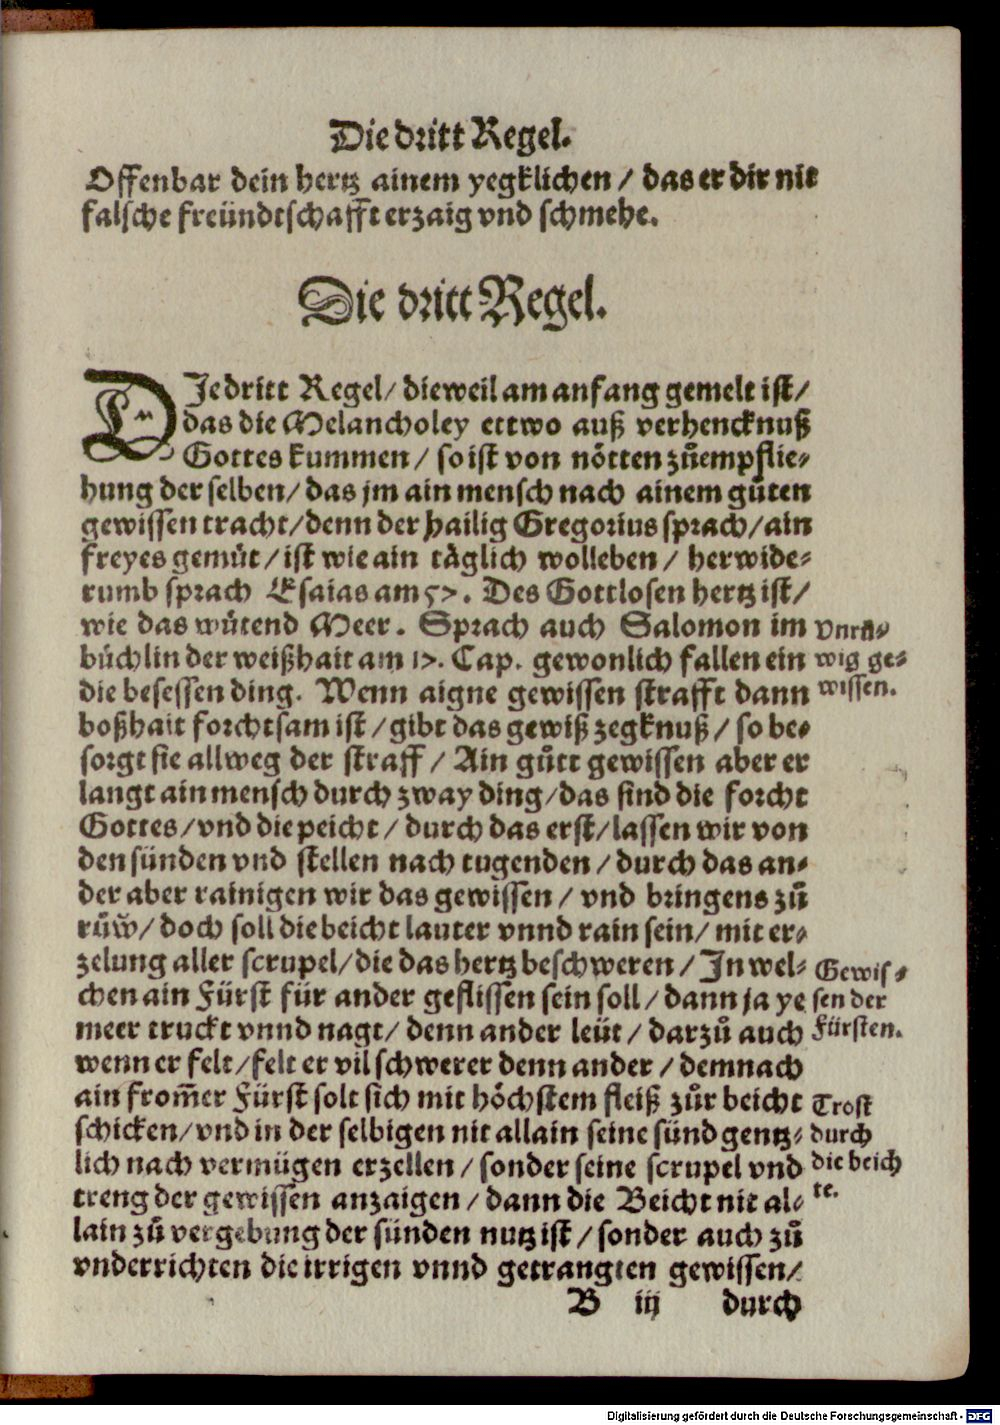 Die dritt Regel.
Offenbar dein hertz ainem yegklichen / das er dir nit
falsche freündtschafft erzaig vnd schmehe.
Die dritt Regel.
DIe dritt Regel / dieweil am anfang gemelt ist /
das die Melancholey ettwo auß verhencknuß
Gottes kummen / so ist von nötten zůempflie⸗
hung der selben / das jm ain mensch nach ainem gůten
gewissen tracht / denn der hailig Gregorius sprach / ain
freyes gemůt / ist wie ain täglich wolleben / herwide⸗
rumb sprach Esaias am 57. Des Gottlosen hertz ist /
wie das wůtend Meer. Sprach auch Salomon im
büchlin der weißhait am 17. Cap. gewonlich fallen ein
die besessen ding. Wenn aigne gewissen strafft dann
boßhait forchtsam ist / gibt das gewiß zegknuß / so be⸗
sorgt sie allweg der straff / Ain gůtt gewissen aber er
langt ain mensch durch zway ding / das sind die forcht
Gottes / vnd die peicht / durch das erst / lassen wir von
den sünden vnd stellen nach tugenden / durch das an⸗
der aber rainigen wir das gewissen / vnd bringens zů
růw / doch soll die beicht lauter vnnd rain sein / mit er⸗
zelung aller scrupel / die das hertz beschweren / In wel⸗
chen ain Fürst für ander geflissen sein soll / dann ja ye
meer truckt vnnd nagt / denn ander leüt / darzů auch
wenn er felt / felt er vil schwerer denn ander / demnach
ain from̄er Fürst solt sich mit höchstem fleiß zůr beicht
schicken / vnd in der selbigen nit allain seine sünd gentz⸗
lich nach vermügen erzellen / sonder seine scrupel vnd
treng der gewissen anzaigen / dann die Beicht nit al⸗
lain zů vergebung der sünden nutz ist / sonder auch zů
vnderrichten die irrigen vnnd getrangten gewissen /
B iij durch
Vnrů⸗
wig ge⸗
wissen.
Gewis⸗
sen der
Fürsten.
Trost
durch
die beich
te.
Digitalisierung gefördert durch die Deutsche Forschungsgemeinschaft - DFG